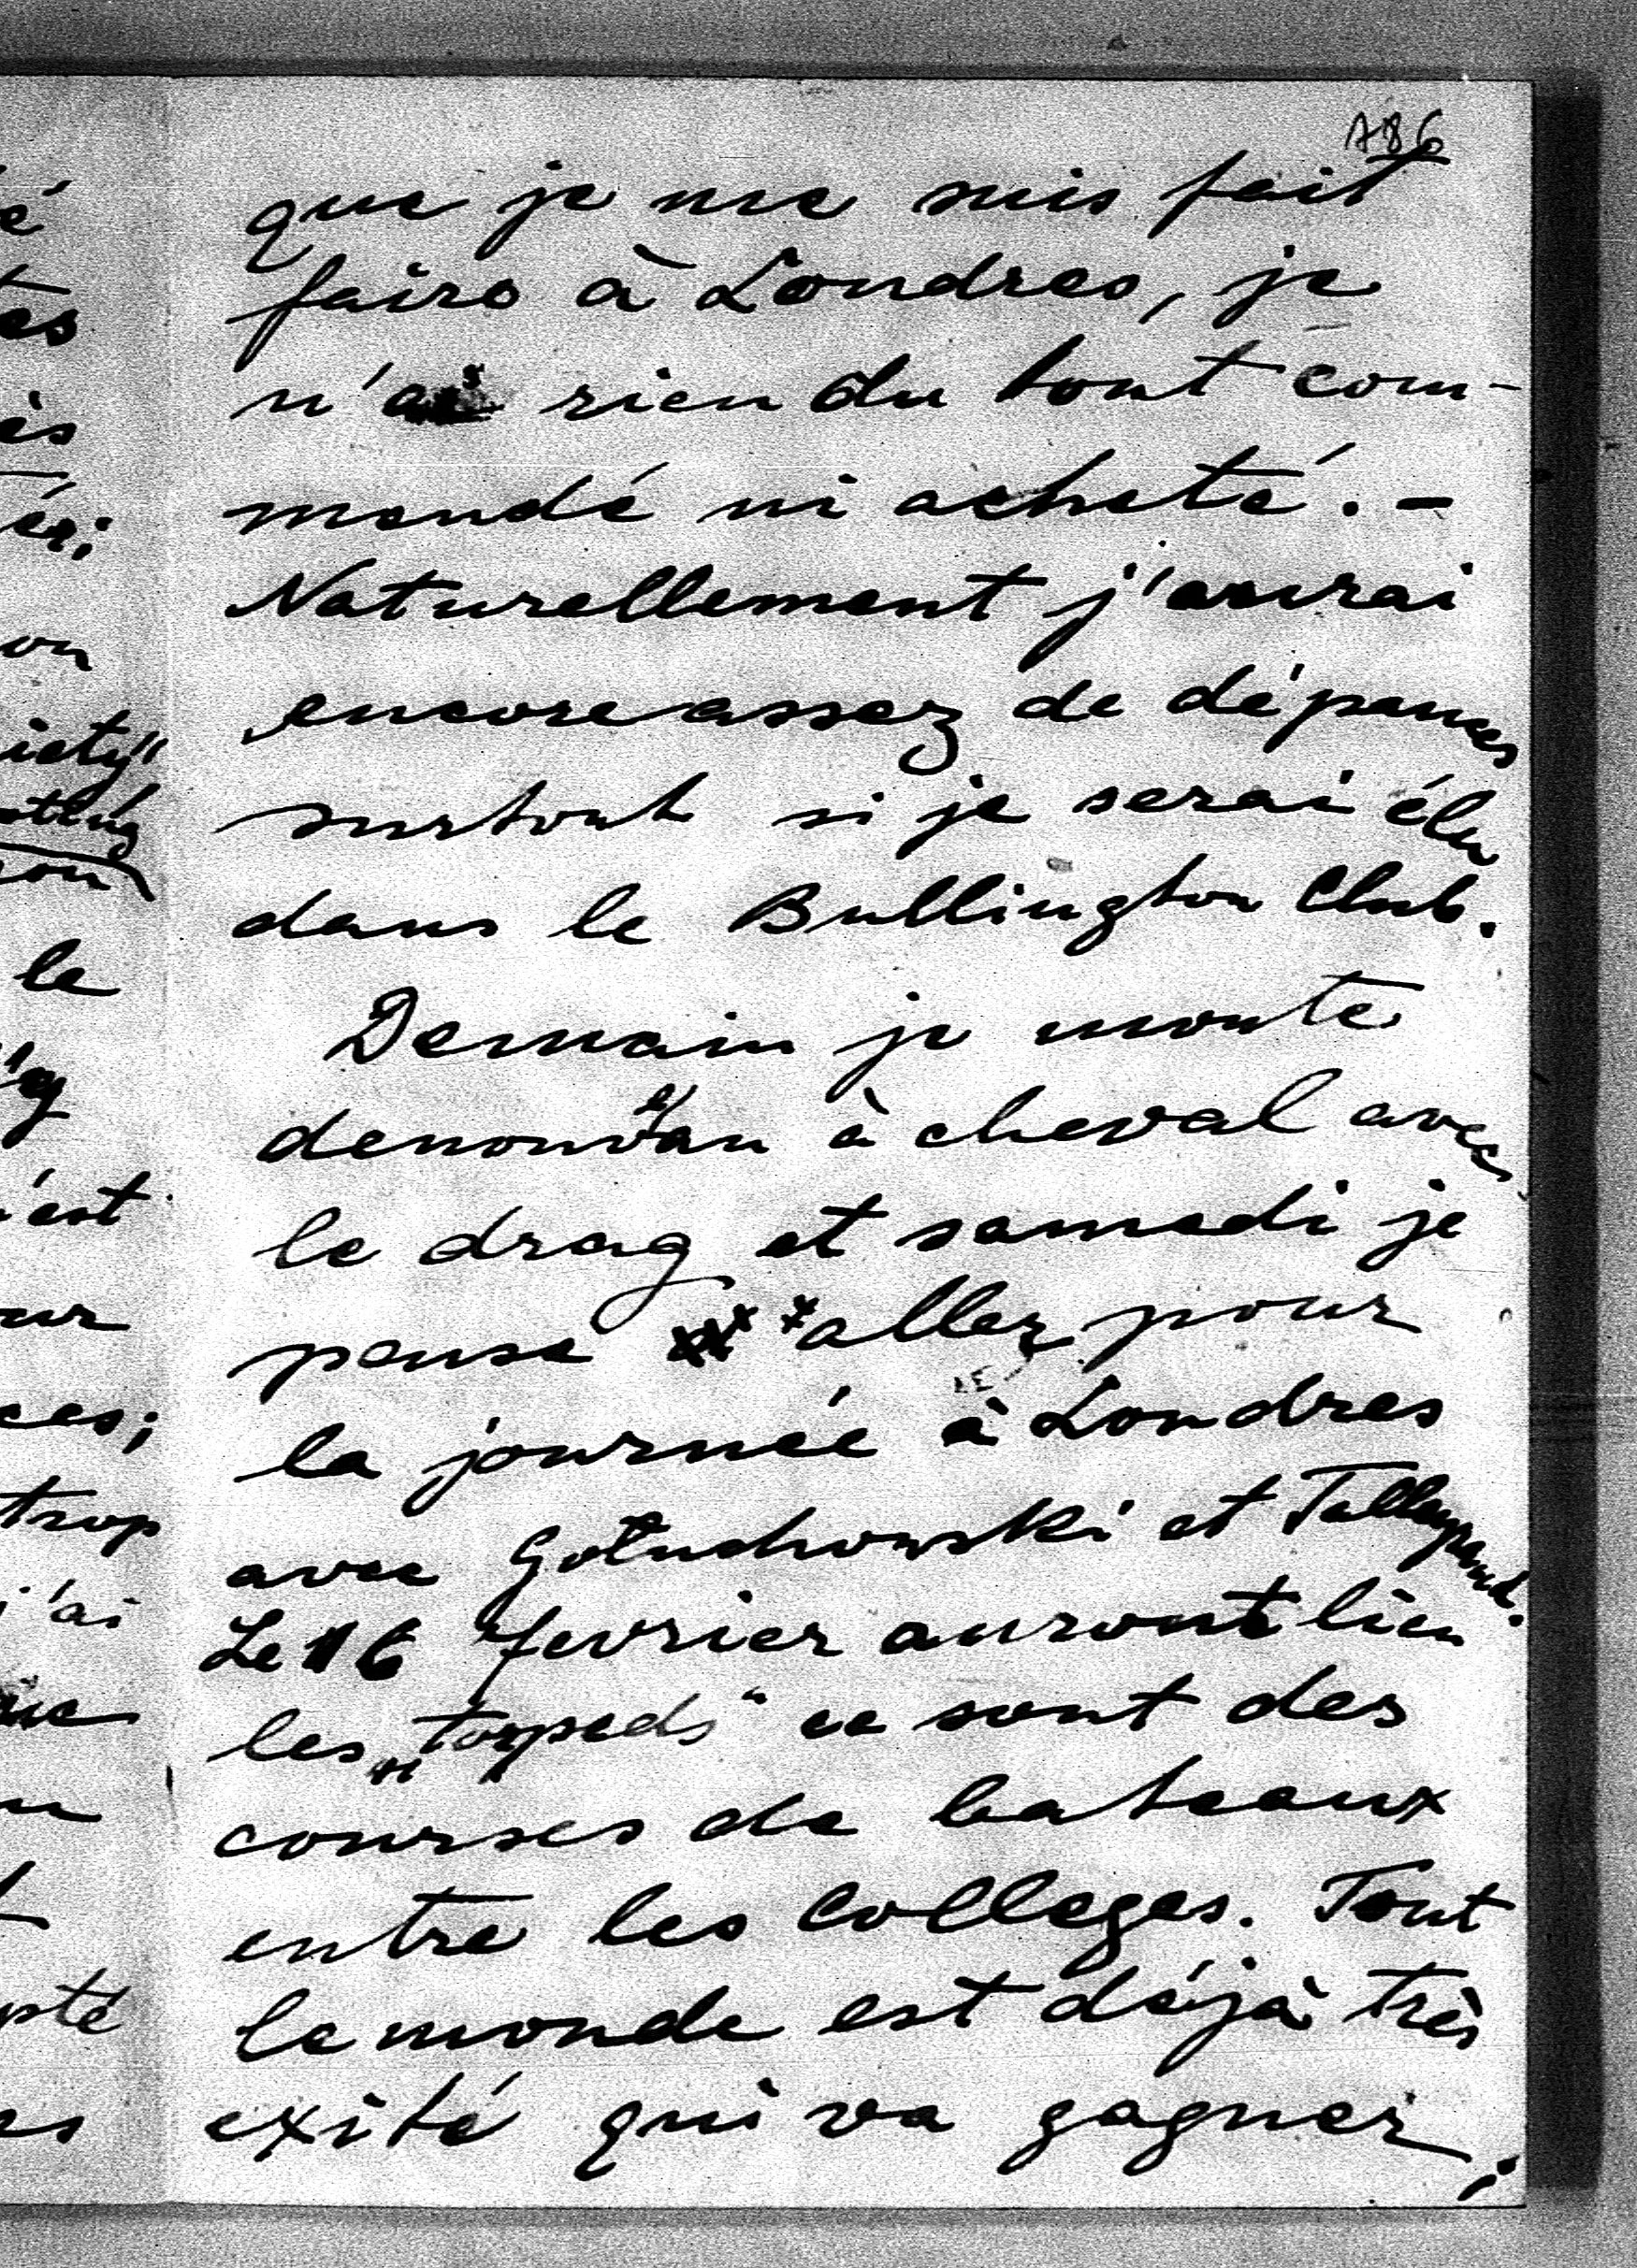 é
186
tes
ès
ér;
on
iety"
la
'y
'est
ur
ces;
trop
j'ai
que je me suis fait
faire à Londres, je
n'ai rien du tout com-
mandé ni acheté. -
Naturellement j'aurai
encore assez de dépances
surtout si je serai élu
dans le Bullington Club.
Demain je monte
denouveau à cheval avec
le drag et samedi je
pense aller pour
la journée à Londres
avec Gołuchowski et Talleyrand.
Le 16 fevrier auront lieu
les „torpeds" ce sont des
courses de bateaux
entre les colleges. Tout
le monde est déjà très
exité qui va gagner;